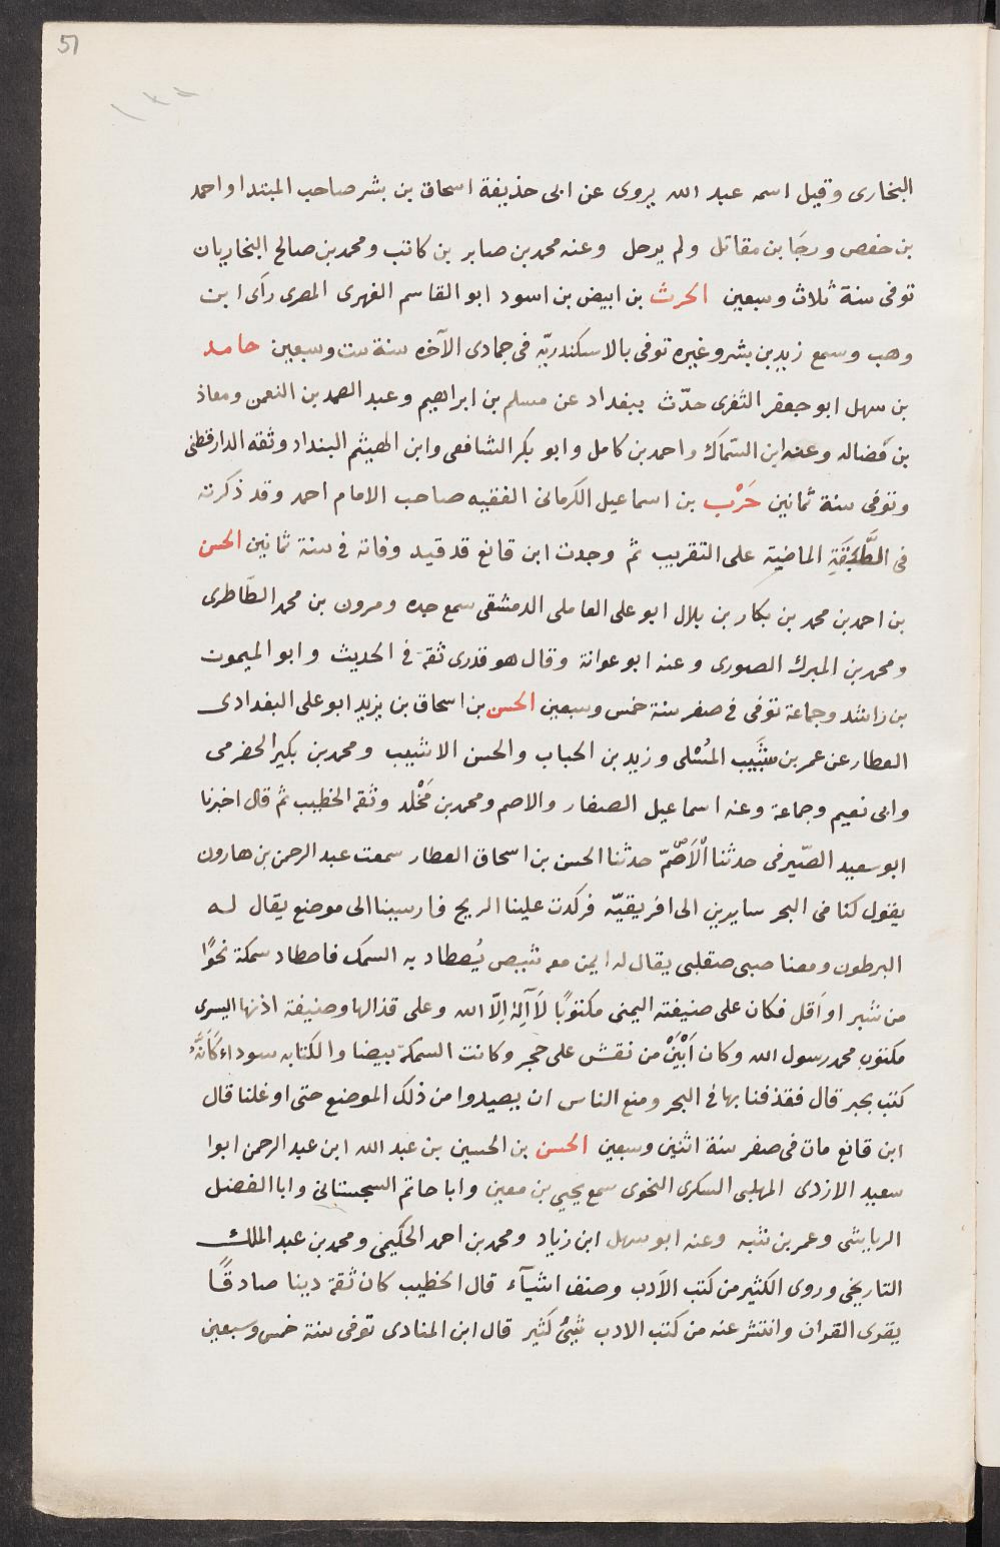 51
١٢٥
البخارى وقيل اسمه عبد الله يروى عن ابى حذيفة اسحاق بن بشر صاحب المبتدا واحمد
بن حفص ورجَا بن مقاتل ولم يرحل وعنه محمد بن صابر بن كاتب ومحمد بن صالح البخاريان
توفى سنة ثلاث وسبعين الحرث بن ابيض بن اسود ابو القاسم الفهرى المصرى رآى ابن
وهب وسمع زيد بن بشر وغيره توفى بالاسكندريّه فى جمادى الآخره سنة ست وسبعين حامد
بن سهل ابو جعفر الثغرى حدّث ببغداد عن مسلم بن ابراهيم وعبد الصمد بن النعمن ومعاذ
بن فضاله وعنه ابن السّماك واحمد بن كامل وابو بكر الشافعى وابن الهيثم البنداد وثقه الدارقطنى
وتوفى سنة ثمانين حَرْب بن اسماعيل الكرمانى الفقيه صاحب الامام احمد وقد ذكرته
فى الطَّبَقَةِ الماضية على التقريب ثم وجدت ابن قانع قد قيد وفاته فى سنة ثمانين الحسن
بن احمد بن محمد بن بكار بن بلال ابو على العاملى الدمشقى سمع جده ومرون بن محمد الطَّاطرى
ومحمد بن المبرك الصورى وعنه ابو عوانة وقال هو قدرى ثقة فى الحديث وابو الميمون
بن راشد وجماعة توفى فى صفر سنة خمس وسبعين الحسن بن اسحاق بن يزيد ابو على البغدادى
العطار عن عمر بن شَبيب المُسْلى وزيد بن الحباب والحسن الاشيب ومحمد بن بكير الحضرمى
وابى نعيم وجماعة وعنه اسماعيل الصفار والاصم ومحمد بن مَخْلد وثقه الخطيب ثم قال اخبرنا
ابو سعيد الصّيرفى حدثنا الْاَصَّمّ حدثنا الحسن بن اسحاق العطار سمعت عبد الرحمن بن هارون
يقول كنا فى البحر سايرين الى افريقيّه فركدت علينا الريح فارسينا الى موضع يقال له
البرطون ومعنا صبى صقلبى يقال له ايمن معه شبص يُصطاد به السمك فاصطاد سمكة نحوًا
من شبر او اَقل فكان على صنيفته اليمنى مكتوبًا لَا آلِهَ اِلّا الله وعلى قذالها وصنيفة اذنها اليسرى
مكتوب محمد رسول الله وكان اَبْيَنْ من نقش على حجر وكانت السمكة بيضا والكتابه سوداء كَاَنَّهُ
كتب بحبر قال فقذفنا بها فى البحر ومنع الناس ان يصيدوا من ذلك الموضع حتى اوغلنا قال
ابن قانع مات فى صفر سنة اثنين وسبعين الحسن بن الحسين بن عبد الله ابن عبد الرحمن ابوا
سعيد الازدى المهلبى السكرى النحوى سمع يحيى بن معين وابا حاتم السجستانى وابا الفضل
الرياشى وعمر بن شبه وعنه ابو سهل ابن زياد ومحمد بن احمد الحكيمى ومحمد بن عبد الملك
التاريخى وروى الكثير من كتب الاَدب وصنف اشيآء قال الخطيب كان ثقة دينا صادقًا
يقرى القران وانتشر عنه من كتب الادب شيئ كثير قال ابن المنادى توفى سنة خمس وسبعين